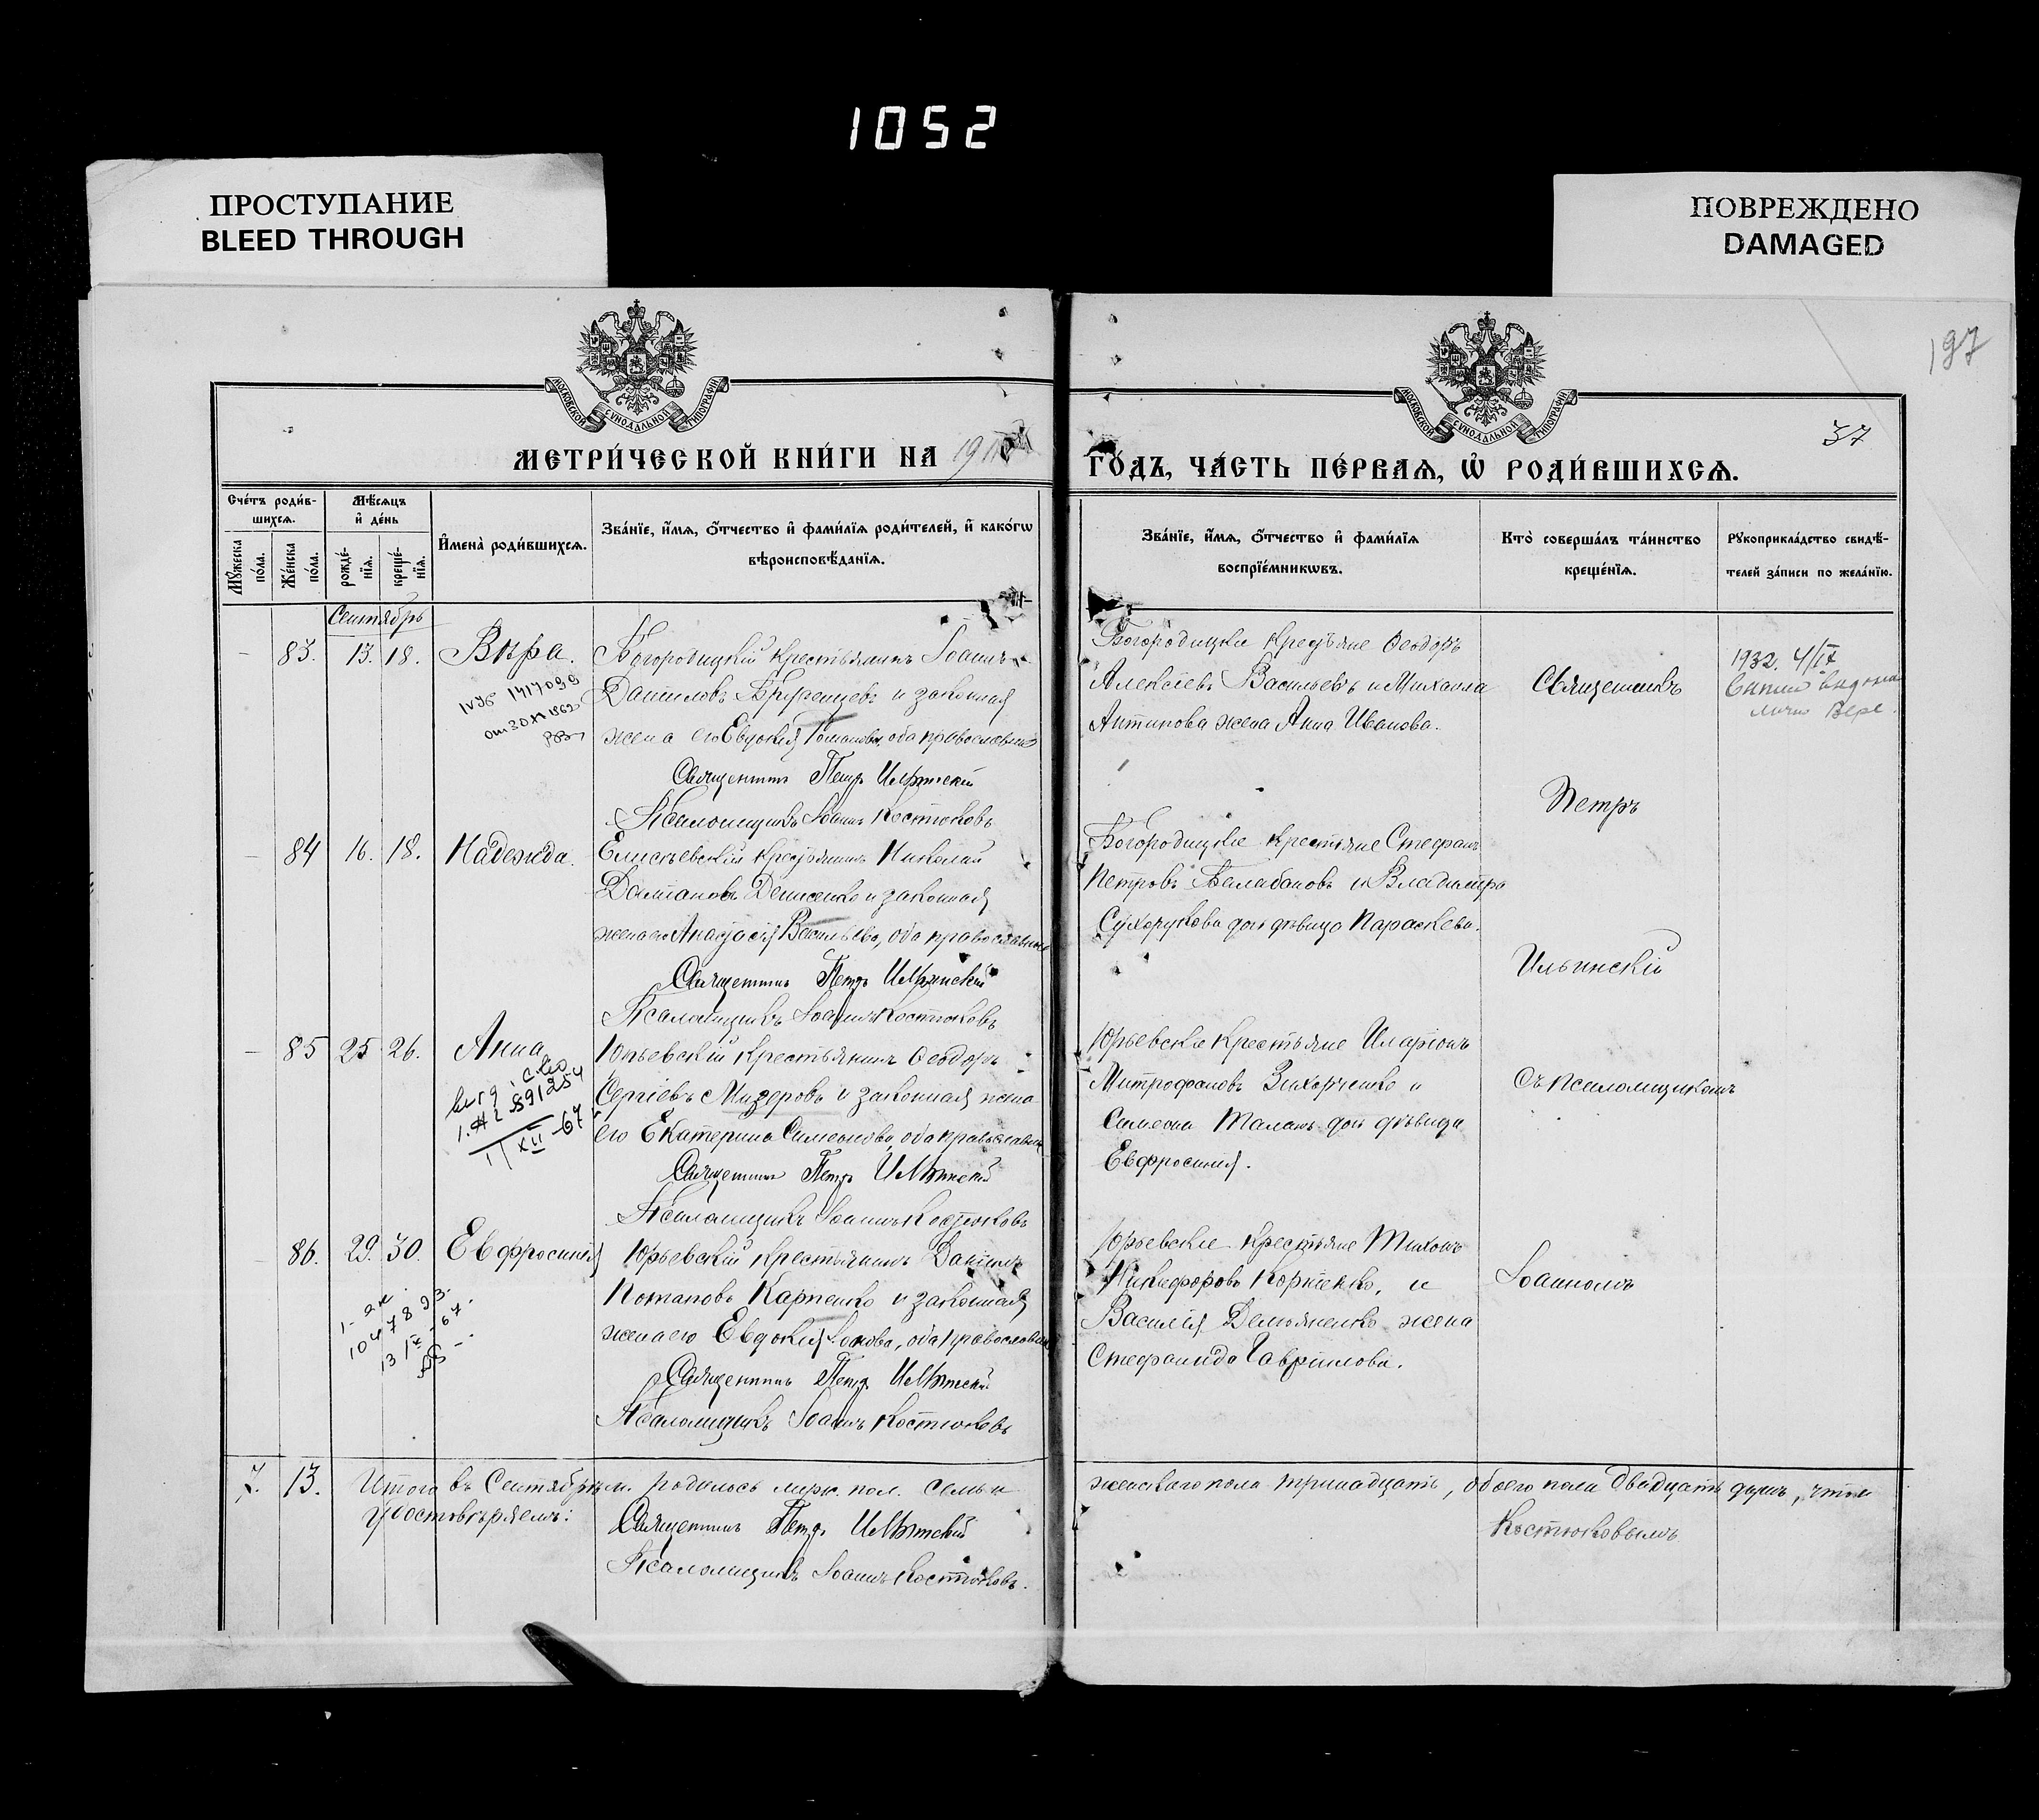 1052
ПРОСТУПАНИЕ
BLEED THROUGH
ПОВРЕЖДЕНО
DAMAGED
197
МОСКОВСКОЙ СѴНОДАЛЬНОЙ ТИПОГРАФІИ
МОСКОВСКОЙ СѴНОДАЛЬНОЙ ТИПОГРАФІИ
37
МЕТРИ́ЧЕСКОЙ КНИ́ГИ НА 191
ГО́ДЪ, ЧА́СТЬ ПЕ́РВАѦ, Ѡ҆ РОДИ́ВШИХСѦ.
Сче́тъ роди́в-
шихсѧ.
Мѣ́сѧцъ
и҆ де́нь
Мꙋ́жеска
по́ла.
Же́нска
по́ла.
рожде́-
нїѧ.
креще́-
нїѧ.
И҆мена̀ роди́вшихсѧ.
Зва́нїе, и҆́мѧ, ѻ҆́тчество и҆ фами́лїѧ роди́телей, и҆ како́гѡ
вѣроисповѣ́данїѧ.
Зва́нїе, и҆́мѧ, ѻ҆́тчество и҆ фами́лїѧ
воспрїе́мникѡвъ.
Кто̀ соверша́лъ та́инство
креще́нїѧ.
Рꙋкоприкла́дство свидѣ́-
телей за́писи по жела́нїю.
Сентябрь
83. 13. 18. Вѣра.
Богородицкій крестьянинъ Іоаннъ
Даниловъ и законная
жена его Евдокія Романова, оба православные
Священникъ Петръ Ильинскій
Псаломщикъ Іоаннъ Костюковъ
Богородицкіе крестьяне Ѳеодоръ
Алексіевъ Васильевъ и Михаила
Антипова жена Анна Иванова.
Священникъ
1932. 4/IX
лично Вере.
Петръ
84 16. 18. Надежда.
Елисѣевскій крестьянинъ Николай
Даміановъ Денисенко и законная
жена его Анастасія Васильева, оба православные
Священникъ Петръ Ильинскій
Псаломщикъ Іоаннъ Костюковъ
Богородицкіе крестьяне Стефанъ
Петровъ Балабановъ и Владиміра
Сухорукова дочь дѣвица Параскева.
Ильинскій
85 25 26. Анна
891254
Юрьевскій крестьянинъ Ѳеодоръ
Сергіевъ Мизеровъ и законная жена
его Екатерина Симеонова, оба православные
Священникъ Петръ Ильинскій
Псаломщикъ Іоаннъ Костюковъ
Юрьевскіе крестьяне Иларіонъ
Митрофановъ и
Симеона дочь дѣвица
Евфросинія.
Съ псаломщикомъ
86. 29. 30. Евфросинія
Юрьевскій крестьянинъ Даніилъ
Потаповъ Карпенко и законная
жена его Евдокія, оба православные
Священникъ Петръ Ильинскій
Псаломщикъ Іоаннъ Костюковъ
Юрьевскіе крестьяне Тихонъ
Никифоровъ Корніенко, и
Василія Демьяненко жена
Стефанида Гаврилова.
Іоанномъ
7. 13. Итого въ Сентябрѣ м. родилось муж. пол. семь и
женскаго пола тринадцать, обоего пола двадцать душъ, что и
удостовѣряемъ:
Священникъ Петръ Ильинскій
Псаломщикъ Іоаннъ Костюковъ.
Костюковымъ